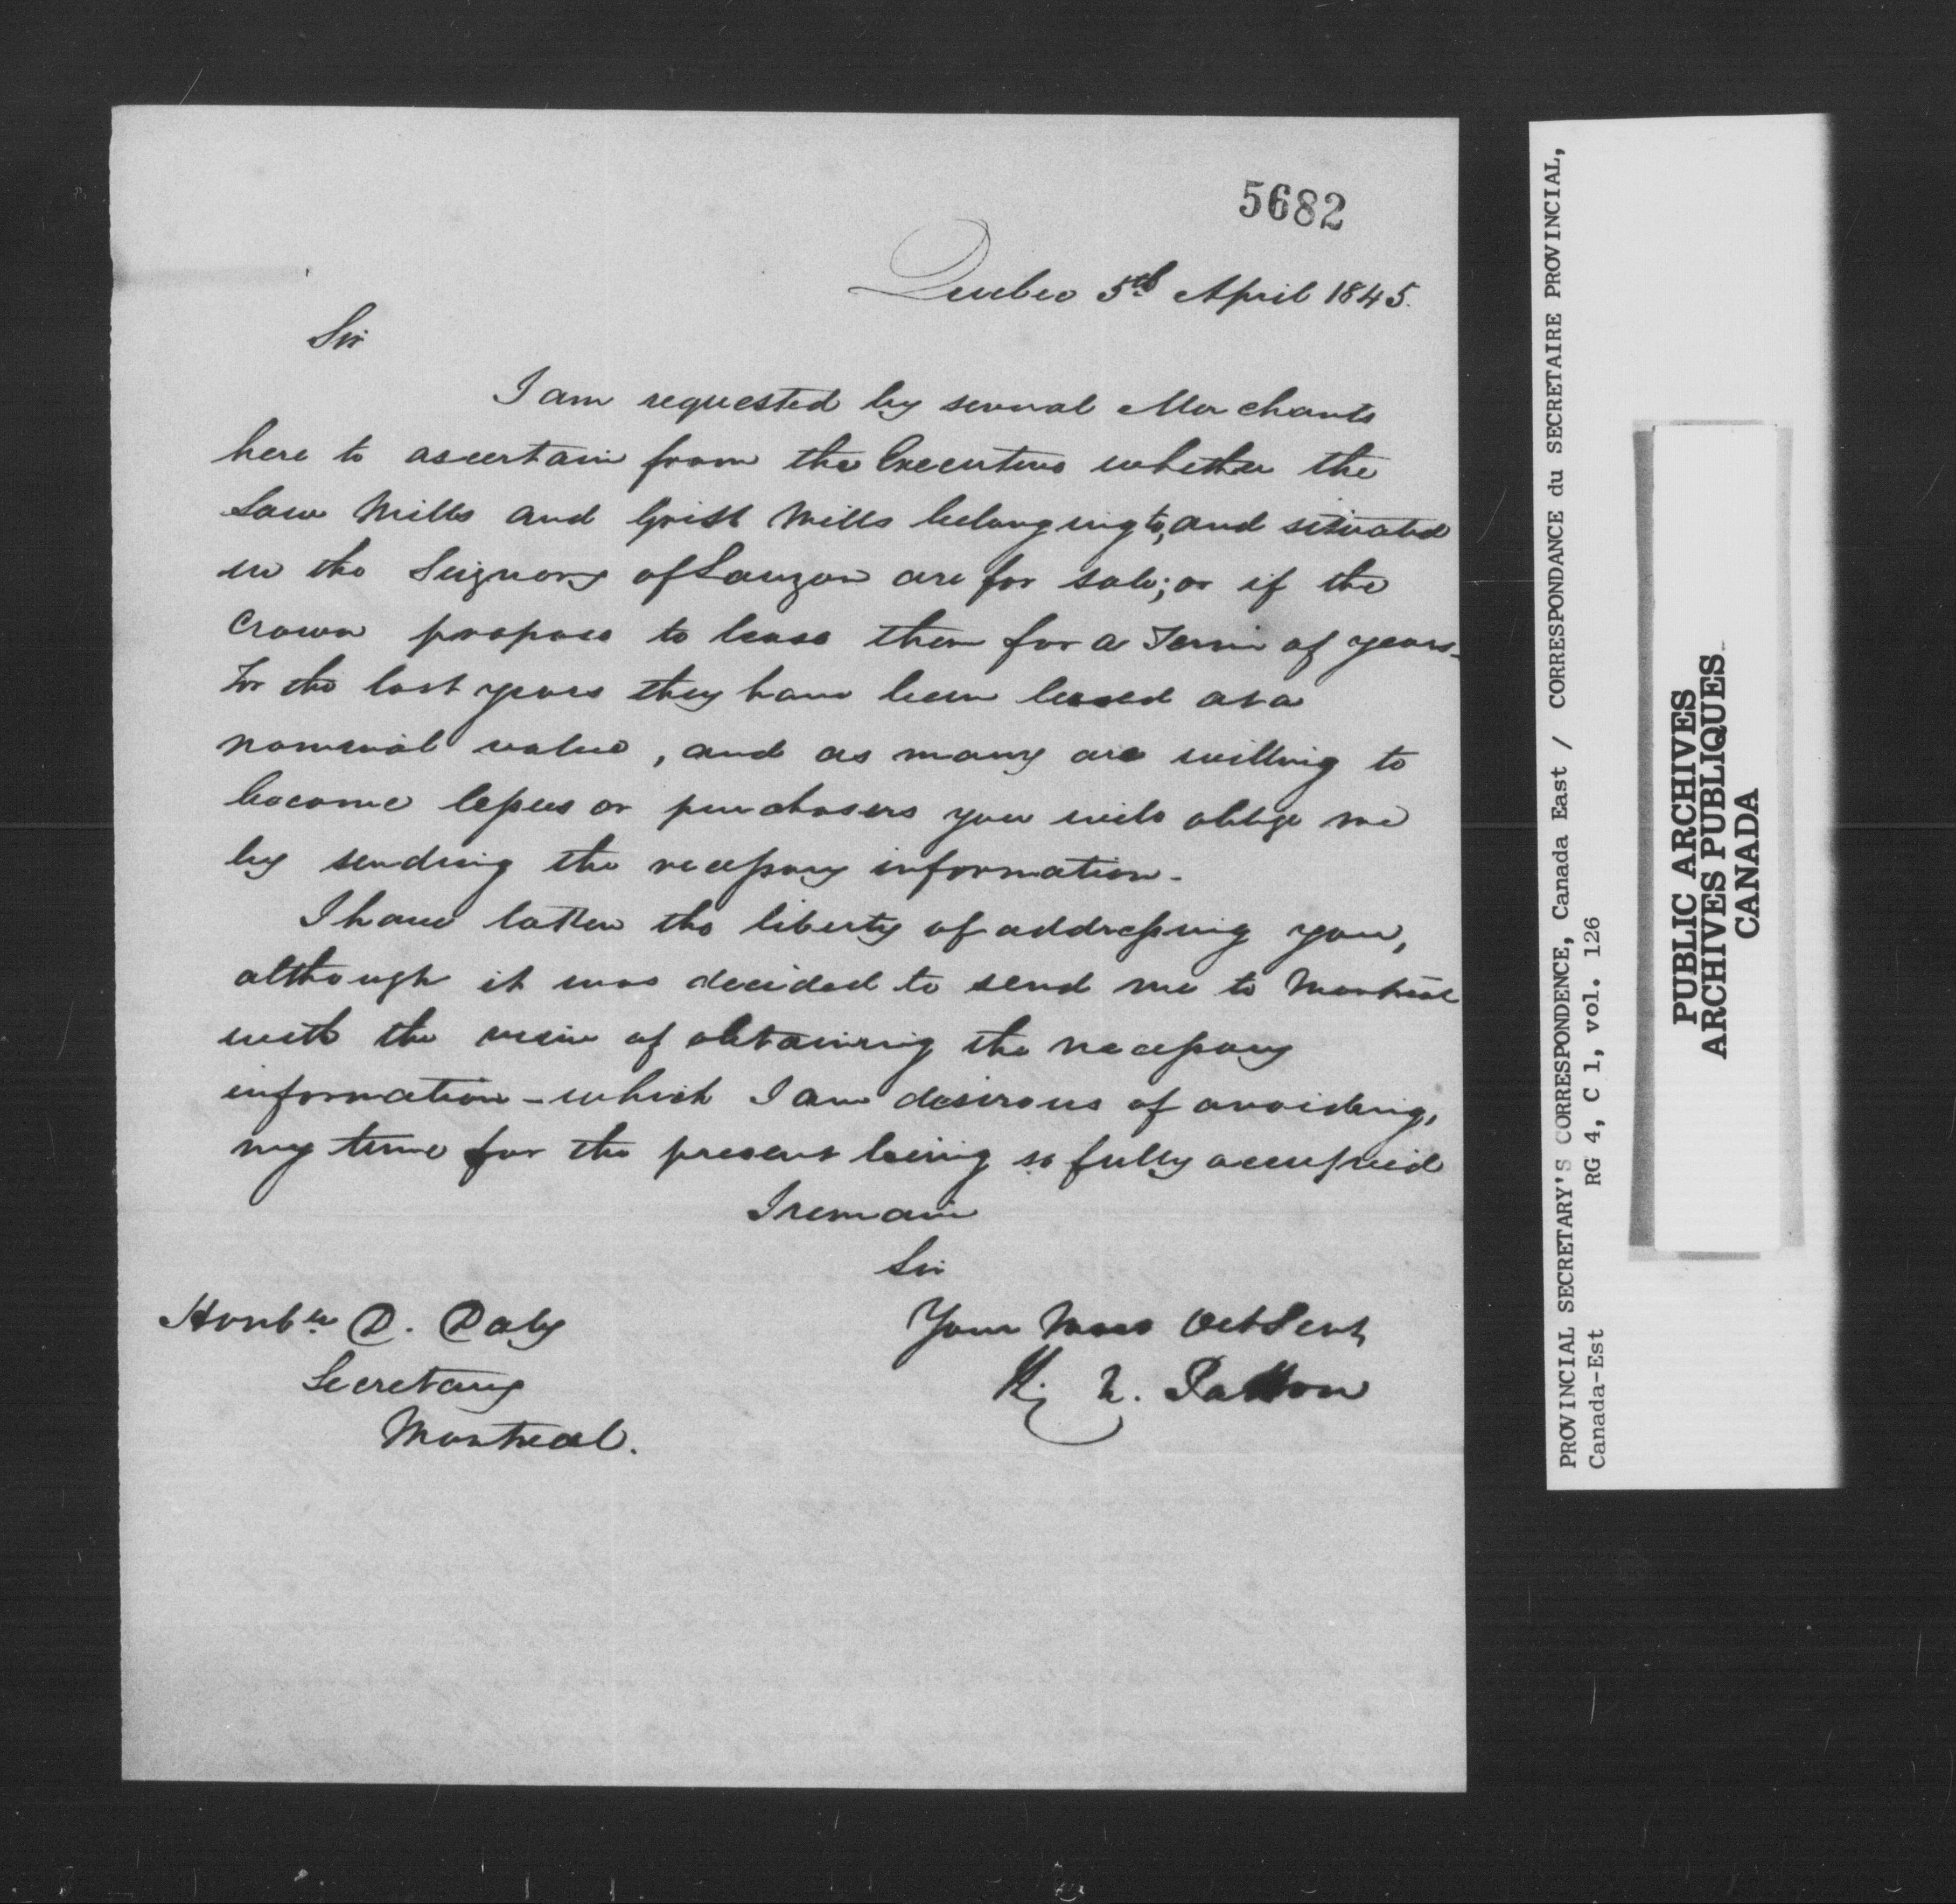 5682
Quebec 5th April 1845.
Sir
I am requested by several Merchants
here to ascertain from the Executive whether the
Saw Mills and Grist Mills belonging to, and situated
in the Seignory of Lauzon are for sale; or if the
Crown propose to lease them for a Term of years.
For the last years they have been leased at a
nominal value, and as many are willing to
become lessees or purchasers you will oblige me
by sending the necessary information.
I have taken the liberty of addressing you,
although it was decided to send me to Montreal
with the view of obtaining the necessary
information - which I am desirous of avoiding,
my time for the present being so fully occupied
I remain
Sir
Your Most Obt Servt
Patton
Honble D. Daly
Secretary
Montreal.
PROVINCIAL SECRETARY'S CORRESPONDENCE, Canada East / CORRESPONDANCE du SECRETAIRE PROVINCIAL,
Canada-Est RG 4, C 1, vol. 126
PUBLIC ARCHIVES
ARCHIVES PUBLIQUES
CANADA